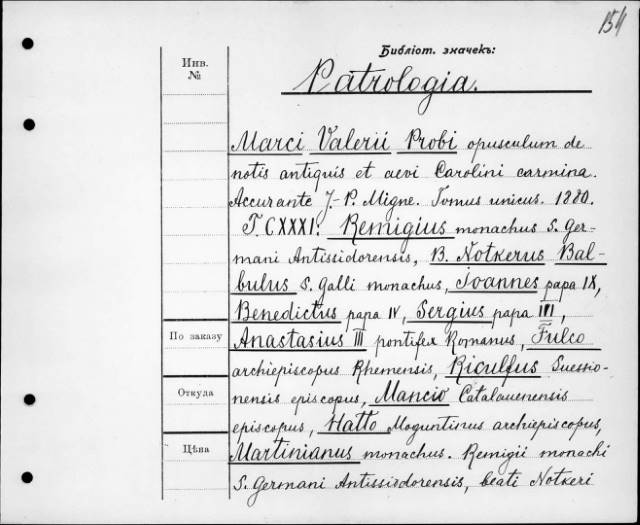 154
Библіот. значекъ:
Инв.
№
Patrologia.
Marci Valerii Probi opusculum de
notis antiquis et aevi Carolini carmina.
Accurante J.-P. Migne. Tomus unicus. 1880.
T. CXXXI: Remigius monachus S. Ger-
mani Antissidorensis, B. Notkerus Bal-
bulus S. Galli monachus, Joannes papa IX,
Benedictus papa IV, Sergius papa III,
По заказу
Anastasius III pontifex Romanus, Fulco
archiepiscopus Rhemensis, Riculfus Suessio-
Откуда
nensis episcopus, Mancio Catalaunensis
episcopus, Hatto Moguntinus archiepiscopus,
Цѣна
Martinianus monachus. Remigii monachi
S. Germani Antissiodorensis, beati Notkeri